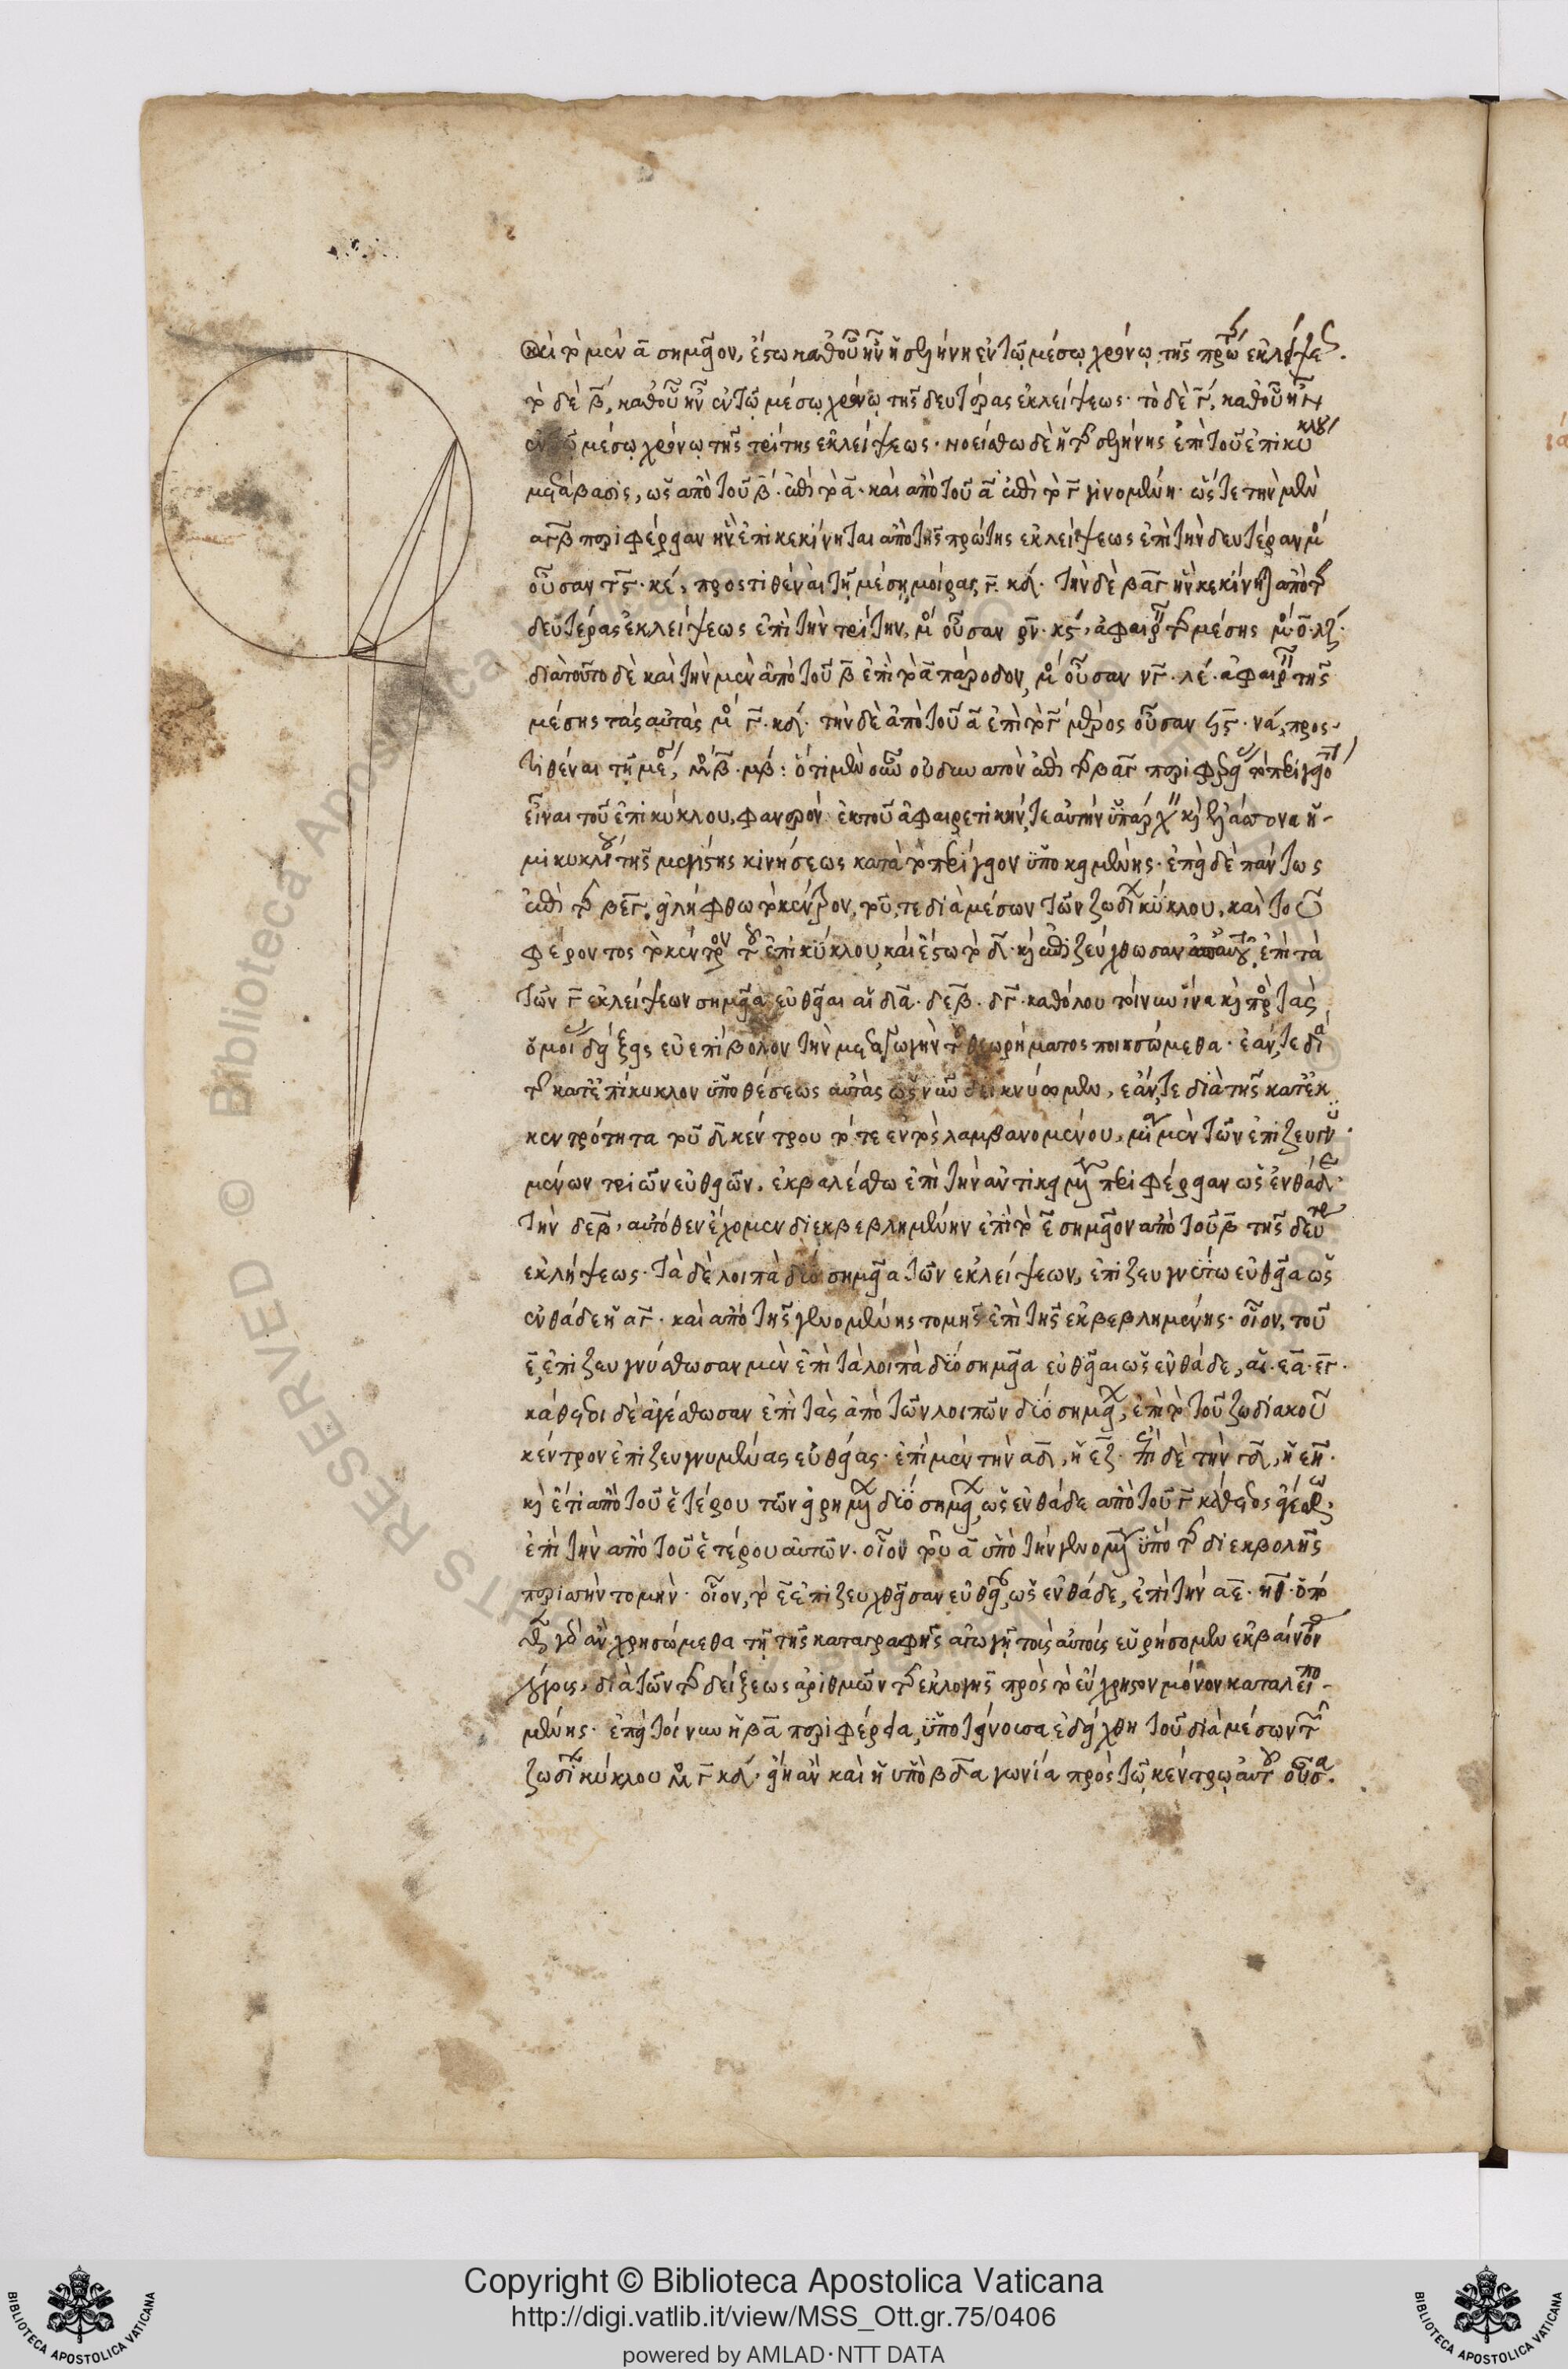 καὶ τὸ μὲν α σημεῖον, ἔστω καθ' οὗ ἦν ἡ σελήνη ἐν τῷ μέσῳ χρόνῳ τῆς πρώτης ἐκλείψεως.
τὸ δὲ β, καθ' οὗ ἦν ἐν τῷ μέσῳ χρόνῳ τῆς δευτέρας ἐκλείψεως· τὸ δὲ γ, καθ' οὗ ἦν
ἐν τῷ μέσῳ χρόνῳ τῆς τρίτης ἐκλείψεως· νοείσθω δὲ ἡ τῆς σελήνης ἐπὶ τοῦ ἐπικύκλου
μετάβασις, ὡς ἀπὸ τοῦ β ἐπὶ τὸ α· καὶ ἀπὸ τοῦ α ἐπὶ τὸ γ γινομένη· ὥστε τὴν μὲν
αγβ περιφέρειαν ἣν ἐπικεκίνηται ἀπὸ τῆς πρώτης ἐκλείψεως ἐπὶ τὴν δευτέραν μο
οὖσαν τς· κε, προστιθέναι τῇ μέσῃ μοίρας γ· κδ· τὴν δὲ βαγ ἣν κεκίνηται ἀπὸ τῆς
δευτέρας ἐκλείψεως ἐπὶ τὴν τρίτην, μο οὖσαν ρν· κς, ἀφαιρεῖν τῆς μέσης μο ο· λζ·
διὰ τοῦτο δὲ καὶ τὴν μὲν ἀπὸ τοῦ β ἐπὶ τὸ α πάροδον, μο οὖσαν νγ· λε· ἀφαιρεῖν τῆς
μέσης τὰς αὐτὰς μο γ· κδ· τὴν δὲ ἀπὸ τοῦ α ἐπὶ τὸ γ οὖσαν ϟς· να, προσ-
τιθέναι τῇ μέσῃ, μο β· μβ: ὅτι μὲν οὖν οὐ δυνατὸν ἐπὶ τῆς βαγ περιφερείας τὸ περίγειον
εἶναι τοῦ ἐπικύκλου, φανερὸν ἐκ τοῦ ἀφαιρετικήν τε αὐτὴν ὑπάρχειν κὶ ἐλάττονα ἡ-
μικυκλίου τῆς μεγίστης κινήσεως κατὰ τὸ περίγειον ὑποκειμένης· ἐπεὶ δὲ πάντως
ἐπὶ τῆς βεγ. εἰλήφθω τὸ κέντρον, τοῦ, τε διὰ μέσων τῶν ζωδίων κύκλου, καὶ τοῦ
φέροντος τὸ κέντρον τοῦ ἐπικύκλου, καὶ ἔστω τὸ δ· κὶ ἐπιζεύχθωσαν ἀπ' αὐτοῦ ἐπὶ τὰ
τῶν γ ἐκλείψεων σημεῖα εὐθεῖαι αἱ δα· δεβ· δγ· καθόλου τοίνυν ἵνα κὶ πρὸς τὰς
ὁμοίας δείξεις εὐεπίβολον τὴν μεταγωγὴν τοῦ θεωρήματος ποιησώμεθα· ἐάν τε διὰ
τῆς κατ' ἐπίκυκλον ὑποθέσεως αὐτὰς ὡς νῦν δεικνύωμεν, ἐάν τε διὰ τῆς κατ' ἐκ-
κεντρότητα τοῦ δ κέντρου τότε ἐντὸς λαμβανομένου, μία μὲν τῶν ἐπιζευγνυ-
μένων τριῶν εὐθειῶν, ἐκβαλέσθω ἐπὶ τὴν ἀντικειμένην περιφέρειαν ὡς ἐνθάδε
τὴν δεβ, αὐτόθεν ἔχομεν διεκβεβλημένην ἐπὶ τὸ ε σημεῖον ἀπὸ τοῦ β τῆς δευτέρας
ἐκλήψεως· τὰ δὲ λοιπὰ δύο σημεῖα τῶν ἐκλείψεων, ἐπιζευγνύτω εὐθεῖα ὡς
ἐνθάδε ἡ αγ· καὶ ἀπὸ τῆς γενομένης τομῆς ἐπὶ τῆς ἐκβεβλημένης· οἷον, τοῦ
ε, ἐπιζευγνύσθωσαν μὲν ἐπὶ τὰ λοιπὰ δύο σημεῖα εὐθεῖαι ὡς ἐνθάδε, αἱ· εα· εγ·
κάθετοι δὲ ἀγέσθωσαν ἐπὶ τὰς ἀπὸ τῶν λοιπῶν δύο σημείων, ἐπὶ τὸ τοῦ ζωδιακοῦ
κέντρον ἐπιζευγνυμένας εὐθείας· ἐπὶ μὲν τὴν αδ, ἡ εζ· ἐπὶ δὲ τὴν γδ, ἡ εη·
κὶ ἔτι ἀπὸ τοῦ ἑτέρου τῶν εἰρημένων δύο σημείων, ὡς ἐνθάδε ἀπὸ τοῦ γ κάθετος ἀγέσθω
ἐπὶ τὴν ἀπὸ τοῦ ἑτέρου αὐτῶν· οἷον τοῦ α ὑπὸ τὴν γενομένην ὑπὸ τῆς διεκβολῆς
περισσὴν τομήν· οἷον, τὸ ε ἐπιζευχθεῖσαν εὐθεῖαν, ὡς ἐνθάδε, ἐπὶ τὴν αε· ἡ γθ·
γὰρ ἂν χρησώμεθα τῇ τῆς καταγραφῆς ἀγωγῇ τοῖς αὐτοῖς εὑρήσομεν ἐκβαίνον
λόγοις, διὰ τῶν τῆς δείξεως ἀριθμῶν τῆς ἐκλογῆς πρὸς τὸ εὔχρηστον μόνον καταλειπο-
μένης· ἐπεὶ τοίνυν ἡ βα περιφέρεια, ὑποτείνουσα ἐδείχθη τοῦ διὰ μέσων τῶν
ζωδίων κύκλου μο γ κδ· εἴη ἂν καὶ ἡ ὑπὸ βδα γωνία πρὸς τῷ κέντρῳ αὐτοῦ οὖσα.
Copyright © Biblioteca Apostolica Vaticana
http://digi.vatlib.it/view/MSS_Ott.gr.75/0406
powered by AMLAD·NTT DATA